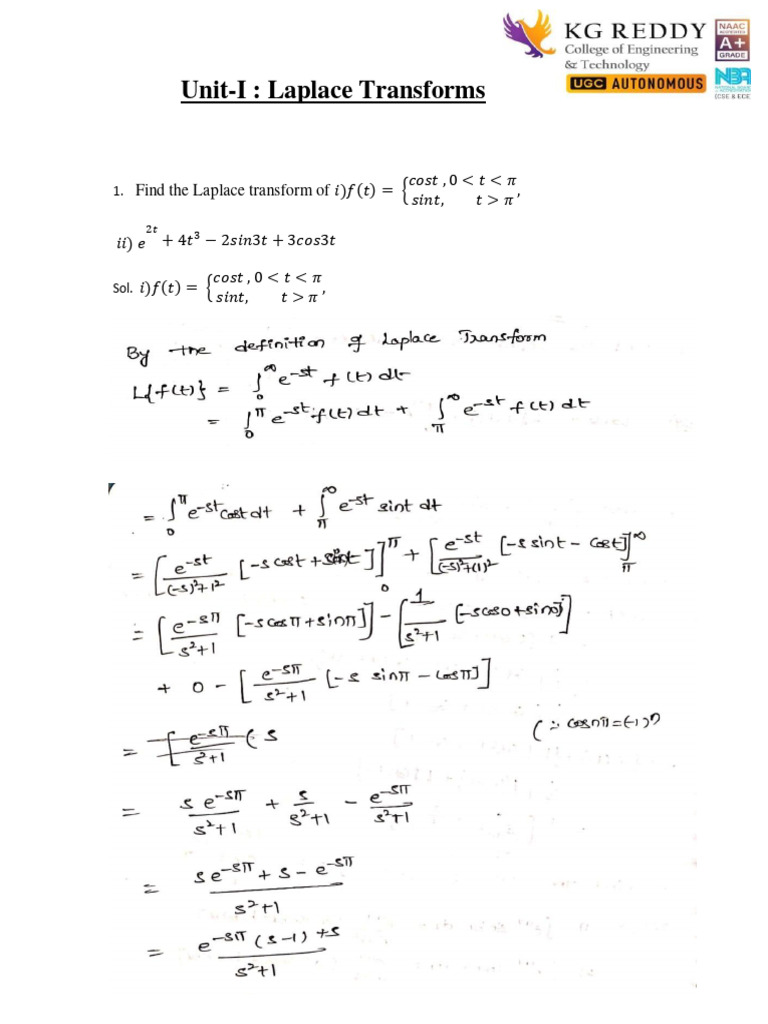 KG REDDY
College of Engineering
& Technology
UGC AUTONOMOUS
NAAC
ACCREDITED
A+
GRADE
NBA
(CSE & ECE)
Unit-I : Laplace Transforms
1. Find the Laplace transform of i)f(t) = {cost , 0 < t < π
sint, t > π ,
ii) e^2t + 4t^3 − 2sin3t + 3cos3t
Sol. i)f(t) = {cost , 0 < t < π
sint, t > π ,
By the definition of Laplace Transform
L{f(t)} = ∫_0^∞ e^-st f(t) dt
= ∫_0^π e^-st f(t) dt + ∫_π^∞ e^-st f(t) dt
= ∫_0^π e^-st cost dt + ∫_π^∞ e^-st sint dt
= [e^-st/((-s)^2+1^2) [-s cost + sint]]_0^π + [e^-st/((-s)^2+(1)^2) [-s sint - cost]]_π^∞
= [e^-sπ/(s^2+1) [-s cosπ + sinπ]] - [1/(s^2+1) [-s cos0 + sin0]]
+ 0 - [e^-sπ/(s^2+1) [-s sinπ - cosπ]]
= [e^-sπ/(s^2+1) (s (∵ cosnπ = (-1)^n
= s e^-sπ/(s^2+1) + s/(s^2+1) - e^-sπ/(s^2+1)
= (s e^-sπ + s - e^-sπ)/(s^2+1)
= (e^-sπ (s-1) + s)/(s^2+1)